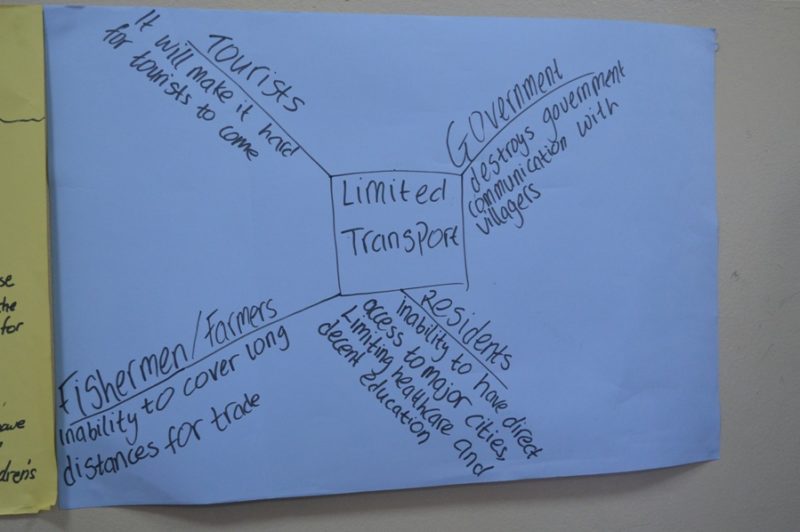 Tourists
It will make it hard
for tourists to come
Government
destroys government
communication with
villagers
Limited
Transport
Fishermen/Farmers
inability to cover long
distances for trade
Residents
inability to have direct
access to major cities,
Limiting healthcare and
decent education
se
the
for
have
dren's